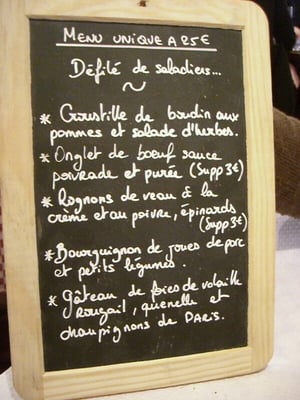 MENU UNIQUE A 25 €
Défilé de saladiers...
~
* Croustille de boudin aux
pommes et salade d'herbes.
* Onglet de bœuf sauce
poivrade et purée (Supp 3€)
* Rognons de veau à la
crème et au poivre, épinards
(Supp 3€)
* Bourguignon de joues de porc
et petits légumes.
* Gâteau de foies de volaille
Rougail, quenelle et
champignons de PARIS.